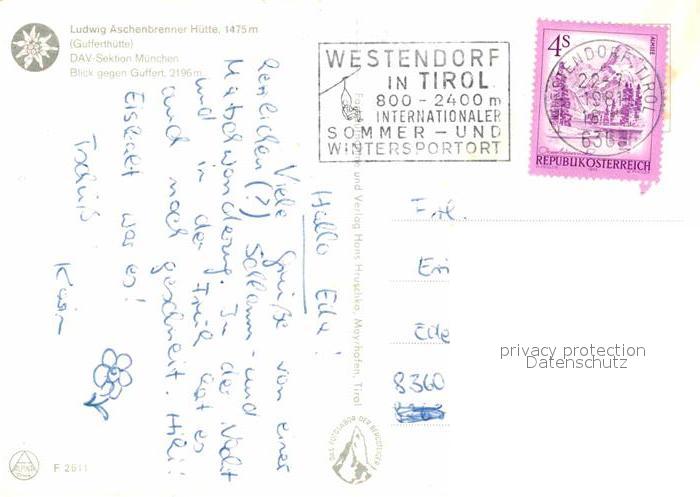 Ludwig Aschenbrenner Hütte, 1475 m
(Gufferthütte)
DAV-Sektion München
Blick gegen Guffert, 2196 m
WESTENDORF
IN TIROL
800 - 2400 m
INTERNATIONALER
SOMMER - UND
WINTERSPORTORT
4S
ALMSEE
REPUBLIK ÖSTERREICH
WESTENDORF, TIROL
1981
636
Hallo Edu!
Viele Grüße von einer
herrlichen (?) Schlamm- und
Matschwanderung. In der Nacht
und in der Früh hat es
auch noch geschneit. Hihi!
Eiskalt war es!
Tschüß
Karin
Foto und Verlag Hans Hruschka, Mayrhofen, Tirol
Frl.
Eri
Ede
8360
privacy protection
Datenschutz
DAS FOTOLABOR DER BERGSTEIGER
ALPINA
F 2611